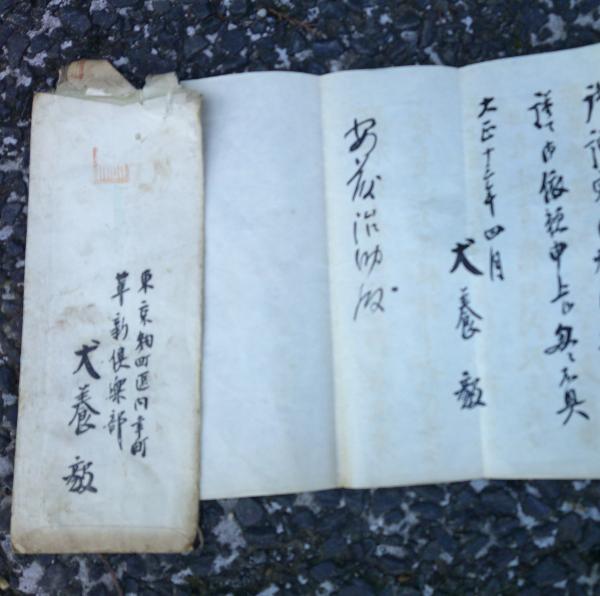 謹て御依頼申上候 匆々不具
大正十三年四月
犬養毅
安茂治助殿
東京麹町区内幸町
革新倶楽部
犬養毅